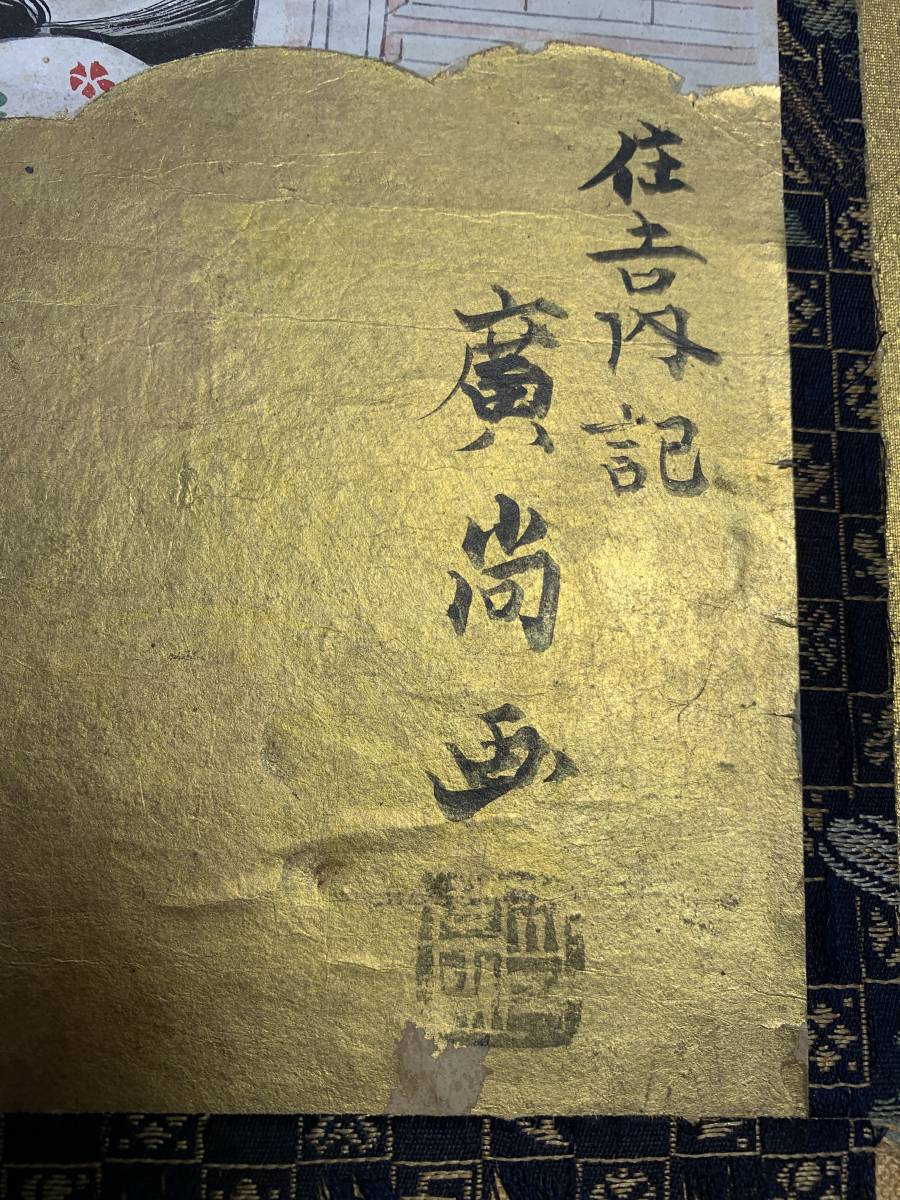 住吉内記
廣尚画